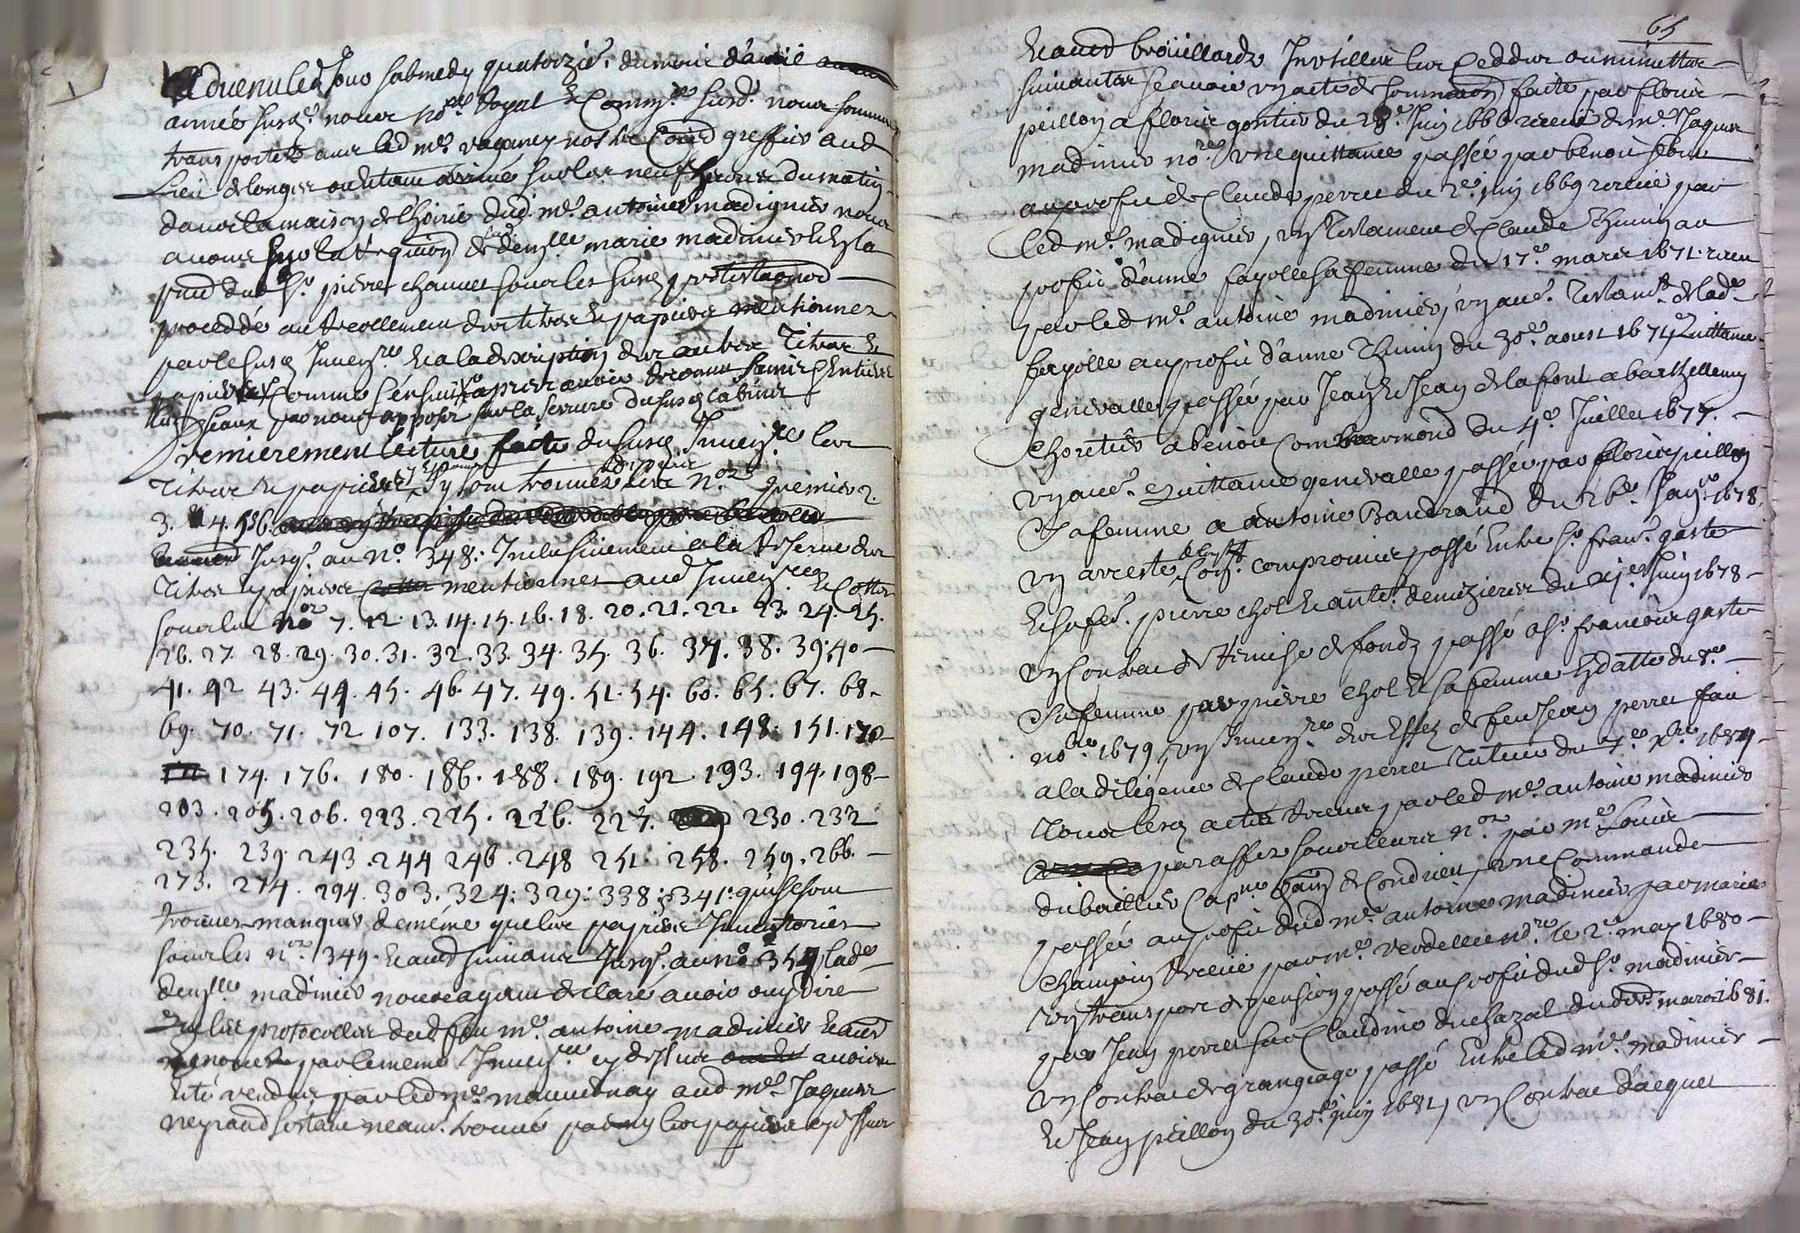 Advenu led. Jour sabmedy quatorzie. du mois d'avril
année susd. nous no.re Royal & Commis.re susd. nous sommes
transportés avec led. me. vaganey nostre Commis greffier aud.
Lieu de longes ou estant arrivé sur les neuf heures du matin
dans la maison de l'hoirie dud. me. antoine madignier nous
avons sur la req.on de lad. dem.lle marie madinier & en la
pnce dud. sr. pierre chauvet sous les susd. protestaons
proceddé au recollement des titres & papiers mentionnez
par le susd. Inven.re & a la description des autres Titres &
papiers comme s'ensuit apres avoir reconnu sains & entiers
les sceaux par nous apposés sur la serrure du susd. cabinet
Premierement lecture faite du susd. Inven.re les
Titres & papiers sy sont trouvés no.res premier 2.
3. 4. 5. 6.
Jusq. au no. 348. Inclusivement a la Reserve des
Titres & papiers mentionnes aud. Inven.re & Cottes
sous les nos 7. 12. 13. 14. 15. 16. 18. 20. 21. 22. 23. 24. 25.
26. 27. 28. 29. 30. 31. 32. 33. 34. 35. 36. 37. 38. 39. 40
41. 42 43. 44. 45. 46. 47. 49. 51. 54. 60. 65. 67. 68.
69. 70. 71. 72 107. 133. 138. 139. 144. 148. 151. 170
174. 176. 180. 186. 188. 189. 192. 193. 194. 198
203. 205. 206. 223. 225. 226. 227. 230. 232
235. 239. 243. 244 246. 248 251. 258. 259. 266.
273. 274. 294. 303. 324. 329. 338. 341. qui se sont
trouvés manquer de meme que les papiers Inventoriés
sous les nos. 349. & aud. suivans Jusq. au no. 354 lad.
dem.lle madinier nous ayant declaré avoir ouy dire
que les protocolles dud. feu me. antoine madinier & aud.
par le meme Inven.re cy dessus avoir
esté vendus par led. me. mauvernay aud. me. Jaques
neyrand s'estant neanm. trouvé parmy les papiers cy dessus
65
& aud. broüillards Intitullés les Ceddes ou minuttes
suivantes scavoir un acte de sommaon faite par floris
peillon a floris gontier du 28e. Juin 1666 receue de me. Jaques
madinier no.re une quittance passée par benoit
au profit de Claude perret du 2e. juin 1669 receue par
led. me. madignier, un testament de Claude Thiuin au
profit d'anne fayolle sa femme du 17e. mars 1671. receu
par led. me. antoine madinier, un autre Testam.t de lad.
fayolle au profit d'anne Thiuin du 30e. aoust 1674 quittance
generalle passée par Jean & Jean de la font a barthellemy
Choretier a benoit Combarmond du 4e. Juillet 1677.
un autre quittance generalle passée par floris peillon
& sa femme a antoine Baudrand du 26e. Jan.r 1678.
un arresté compromis passé Entre sr. fran.s gaste
& sa fe. pierre chol & ant.e demezieres du xje. Juin 1678
un Contrac de Remise de fonds passé a sr. francois gaste
& sa femme par pierre chol & sa femme en datte du 8e.
no.bre 1679, un Inven.re des Effets de feu Jean perret fait
a la diligence de Claude perret Tuteur du 7e. 1684
Tous lesd. actes receus par led. me. antoine madinier
paraffes sous leurs nos. par me. Louis
du baillier Cap.ne de Condrieu, une Commande
passée au profit dud. me. antoine madinier par marie
Champin receue par me. verdellet no.re le 2e. may 1680
un transport de pension passé au profit dud. sr. madinier
par Jean perret sur Claudine duchazal du mars 1681.
un Contrac de grangeage passé Entre led. me. madinier
& Jean peillon du 30e. juin 1681, un Contrac d'acquet